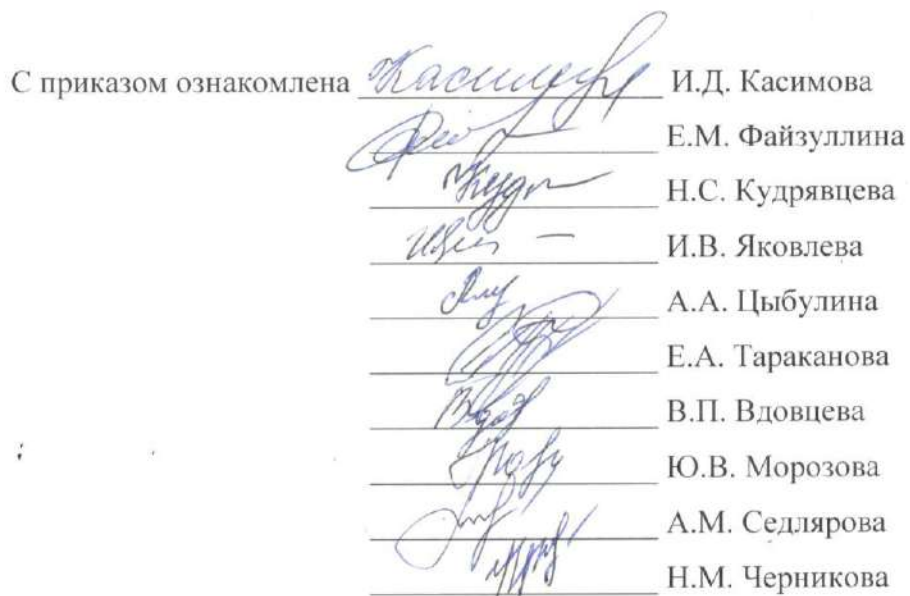 С приказом ознакомлена Касимова И.Д. Касимова
Е.М. Файзуллина
Н.С. Кудрявцева
И.В. Яковлева
А.А. Цыбулина
Е.А. Тараканова
В.П. Вдовцева
Ю.В. Морозова
А.М. Седлярова
Н.М. Черникова